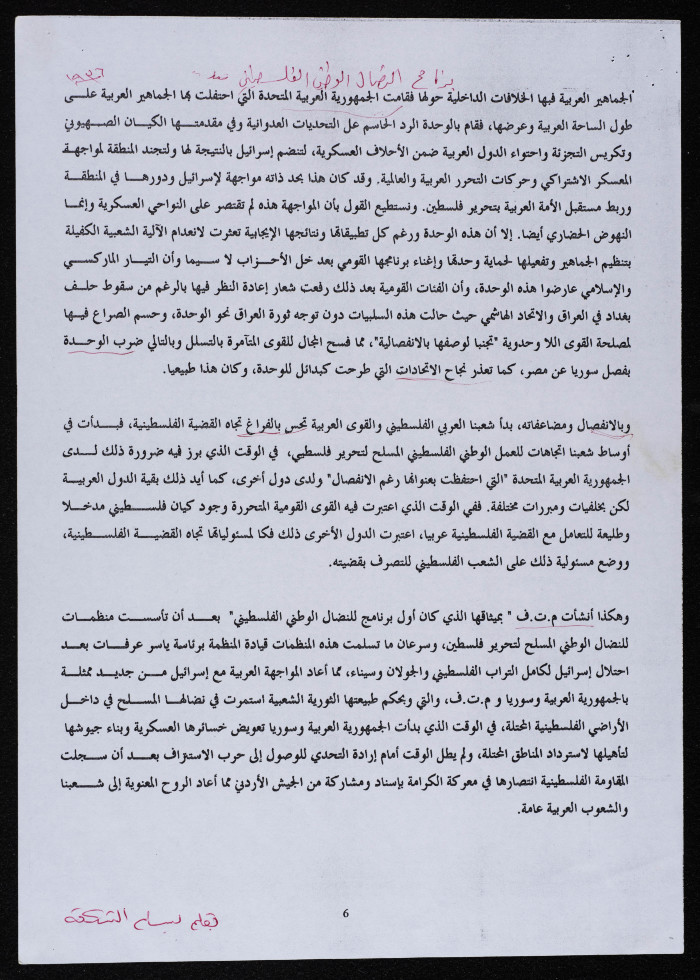 برنامج النضال الوطني الفلسطيني منذ ١٩٣٦
الجماهير العربية فيها الخلافات الداخلية حولها فقامت الجمهورية العربية المتحدة التي احتفلت بها الجماهير العربية على
طول الساحة العربية وعرضها، فقام بالوحدة الرد الحاسم على التحديات العدوانية وفي مقدمتها الكيان الصهيوني
وتكريس التجزئة واحتواء الدول العربية ضمن الأحلاف العسكرية، لتنضم إسرائيل بالنتيجة لها ولتجند المنطقة لمواجهة
المعسكر الاشتراكي وحركات التحرر العربية والعالمية. وقد كان هذا بحد ذاته مواجهة لإسرائيل ودورها في المنطقة
وربط مستقبل الأمة العربية بتحرير فلسطين. ونستطيع القول بأن المواجهة هذه لم تقتصر على النواحي العسكرية وإنما
النهوض الحضاري أيضا. إلا أن هذه الوحدة ورغم كل تطبيقاتها ونتائجها الإيجابية تعثرت لانعدام الآلية الشعبية الكفيلة
بتنظيم الجماهير وتفعيلها لحماية وحدتها وإغناء برنامجها القومي بعد خل الأحزاب لا سيما وأن التيار الماركسي
والإسلامي عارضوا هذه الوحدة، وأن الفئات القومية بعد ذلك رفعت شعار إعادة النظر فيها بالرغم من سقوط حلف
بغداد في العراق والاتحاد الهاشمي حيث حالت هذه السلبيات دون توجه ثورة العراق نحو الوحدة، وحسم الصراع فيها
لمصلحة القوى اللا وحدوية "تجنبا لوصفها بالانفصالية"، مما فسح المجال للقوى المتآمرة بالتسلل وبالتالي ضرب الوحدة
بفصل سوريا عن مصر، كما تعذر نجاح الاتحادات التي طرحت كبدائل للوحدة، وكان هذا طبيعيا.
وبالانفصال ومضاعفاته، بدأ شعبنا العربي الفلسطيني والقوى العربية تحس بالفراغ تجاه القضية الفلسطينية، فبدأت في
أوساط شعبنا اتجاهات للعمل الوطني الفلسطيني المسلح لتحرير فلسطين، في الوقت الذي برز فيه ضرورة ذلك لدى
الجمهورية العربية المتحدة "التي احتفظت بعنوانها رغم الانفصال" ولدى دول أخرى، كما أيد ذلك بقية الدول العربية
لكن بخلفيات ومبررات مختلفة. ففي الوقت الذي اعتبرت فيه القوى القومية المتحررة وجود كيان فلسطيني مدخلا
وطليعة للتعامل مع القضية الفلسطينية عربيا، اعتبرت الدول الأخرى ذلك فكا لمسئولياتها تجاه القضية الفلسطينية،
ووضع مسئولية ذلك على الشعب الفلسطيني للتصرف بقضيته.
وهكذا أنشأت م.ت.ف " بميثاقها الذي كان أول برنامج للنضال الوطني الفلسطيني" بعد أن تأسست منظمات
للنضال الوطني المسلح لتحرير فلسطين، وسرعان ما تسلمت هذه المنظمات قيادة المنظمة برئاسة ياسر عرفات بعد
احتلال إسرائيل لكامل التراب الفلسطيني والجولان وسيناء، مما أعاد المواجهة العربية مع إسرائيل من جديد ممثلة
بالجمهورية العربية وسوريا و م.ت.ف، والتي وبحكم طبيعتها الثورية الشعبية استمرت في نضالها المسلح في داخل
الأراضي الفلسطينية المحتلة، في الوقت الذي بدأت الجمهورية العربية وسوريا تعويض خسائرها العسكرية وبناء جيوشها
لتأهيلها لاسترداد المناطق المحتلة، ولم يطل الوقت أمام إرادة التحدي للوصول إلى حرب الاستنزاف بعد أن سجلت
المقاومة الفلسطينية انتصارها في معركة الكرامة بإسناد ومشاركة من الجيش الأردني مما أعاد الروح المعنوية إلى شعبنا
والشعوب العربية عامة.
6
بقلم بسام الشكعة